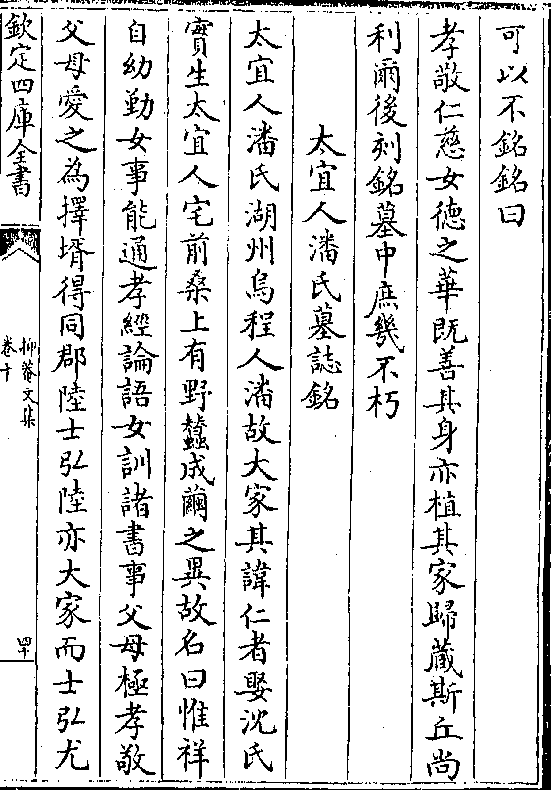 可以不銘銘曰
孝敬仁慈女德之華既善其身亦植其家歸藏斯丘尚
利爾後刻銘墓中庶幾不朽
太宜人潘氏墓誌銘
太宜人潘氏湖州烏程人潘故大家其諱仁者娶沈氏
實生太宜人宅前桑上有野蠶成繭之異故名曰惟祥
自幼勤女事能通孝經論語女訓諸書事父母極孝敬
父母愛之為擇壻得同郡陸士弘陸亦大家而士弘尤
欽定四庫全書
抑菴文集
卷十